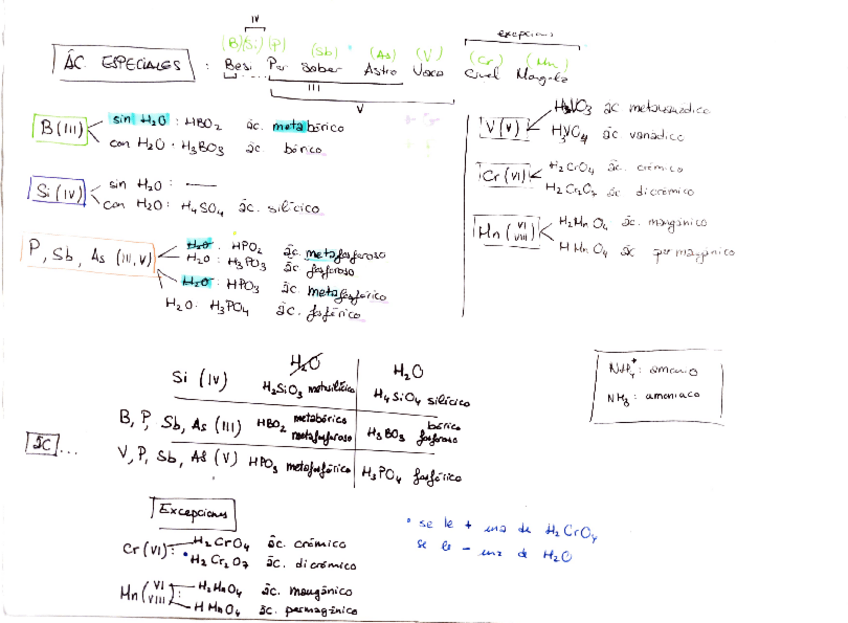 IV
(B) (Si) (P) (Sb) (As) (V) (Cr) (Mn)
excepciones
ÁC. ESPECIALES : Besi Por Saber Astro Vaca
III
V
B (III)
sin H₂O : HBO₂ ác. metabórico
con H₂O · H₃BO₃ ác bórico
Si (IV)
sin H₂O : —
con H₂O: H₄SO₄ ác. silícico
P, Sb, As (III, V)
H₂O : HPO₂ ác. metafosforoso
H₂O : H₃PO₃ ác fosforoso
H₂O : HPO₃ ác. metafosfórico
H₂O: H₃PO₄ ác. fosfórico
V(V)
HVO₃ ác metavanádico
H₃VO₄ ác vanádico
Cr (VI)
H₂CrO₄ ác. crómico
H₂Cr₂O₇ ác dicrómico
Mn (VI VIII)
H₂MnO₄ ác. mangánico
HMnO₄ ác permangánico
H₂O H₂O
Si (IV) H₂SiO₃ metasilícico H₄SiO₄ silícico
B, P, Sb, As (III) HBO₂ metabórico metafosforoso H₃BO₃ bórico fosforoso
V, P, Sb, As (V) HPO₃ metafosfórico H₃PO₄ fosfórico
ÁC ...
NH₄⁺: amonio
NH₃: amoniaco
Excepciones
Cr (VI):
H₂CrO₄ ác. crómico
• H₂Cr₂O₇ ác. dicrómico
Mn (VI VIII):
H₂MnO₄ ác. mangánico
HMnO₄ ác. permagánico
• se le + una de H₂CrO₄
se le - una de H₂O